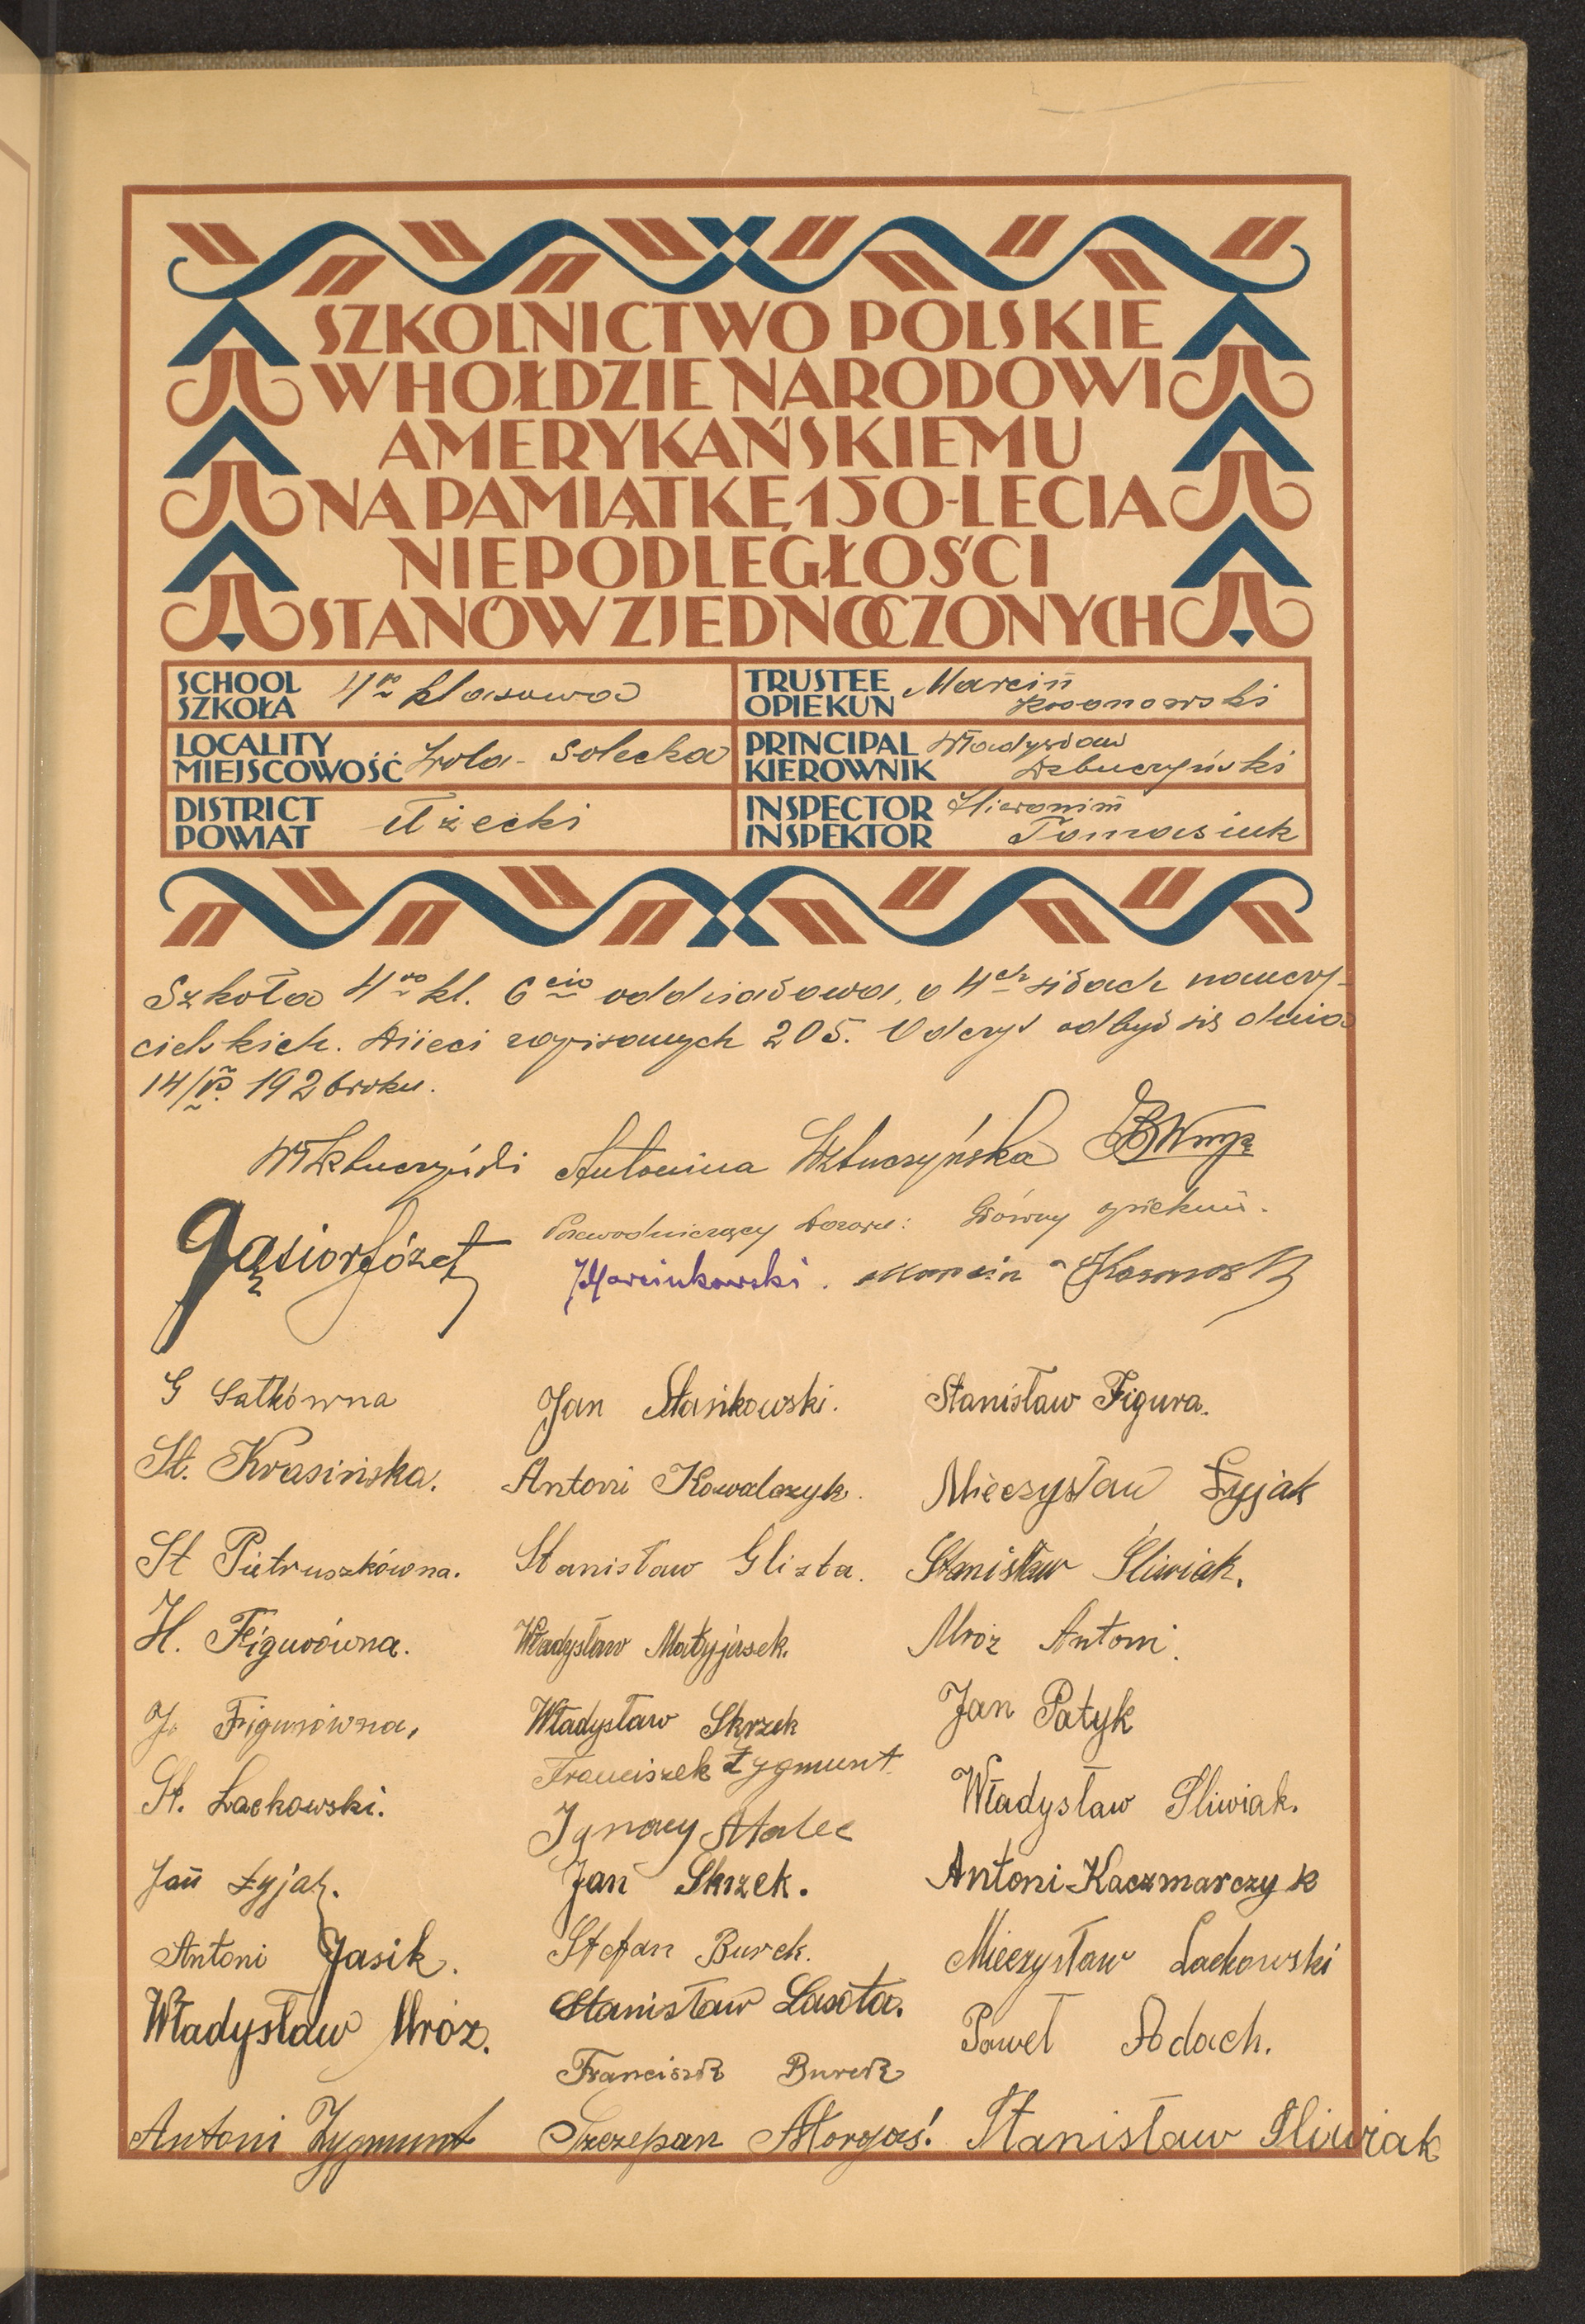 SZKOLNICTWO POLSKIE
W HOŁDZIE NARODOWI
AMERYKAŃSKIEMU
NA PAMIĄTKĘ 150-LECIA
NIEPODLEGŁOŚCI
STANÓW ZJEDNOCZONYCH
SCHOOL
SZKOŁA 4ro klasowa
TRUSTEE
OPIEKUN Marcin
LOCALITY
MIEJSCOWOŚĆ Wola-Solecka
PRINCIPAL
KIEROWNIK Władysław
DISTRICT
POWIAT Iłżecki
INSPECTOR
INSPEKTOR Hieronim
Tomasiuk
Szkoła 4ro kl. 6cio oddziałowa, o 4ch siłach nauczy-
cielskich. Dzieci zapisanych 205. Odczyt odbył się dnia
14/V 1926 roku.
Antonina
Gąsior Józef
Przewodniczący Dozoru: Główny opiekun.
Marcinkowski. Marcin
G Sałkówna
St. Krasińska.
St Pietruszkówna.
H. Figurówna.
J. Figurówna,
St. Lackowski.
Jan Łyjak.
Antoni Jasik.
Władysław Mróz.
Antoni Zygmunt
Jan Stańkowski.
Antoni Kowalczyk.
Stanisław Glizta.
Władysław Matyjasek.
Władysław Skrzek
Franciszek Zygmunt
Ignacy Malec
Jan Skrzek.
Stefan Burek.
Stanisław Lasota.
Franciszek Burek
Szczepan Morgaś!
Stanisław Figura.
Mieczysław Łyjak
Stanisław Śliwiak.
Mróz Antoni.
Jan Patyk
Władysław Śliwiak.
Antoni Kaczmarczyk
Mieczysław Lackowski
Paweł Adach.
Stanisław Śliwiak